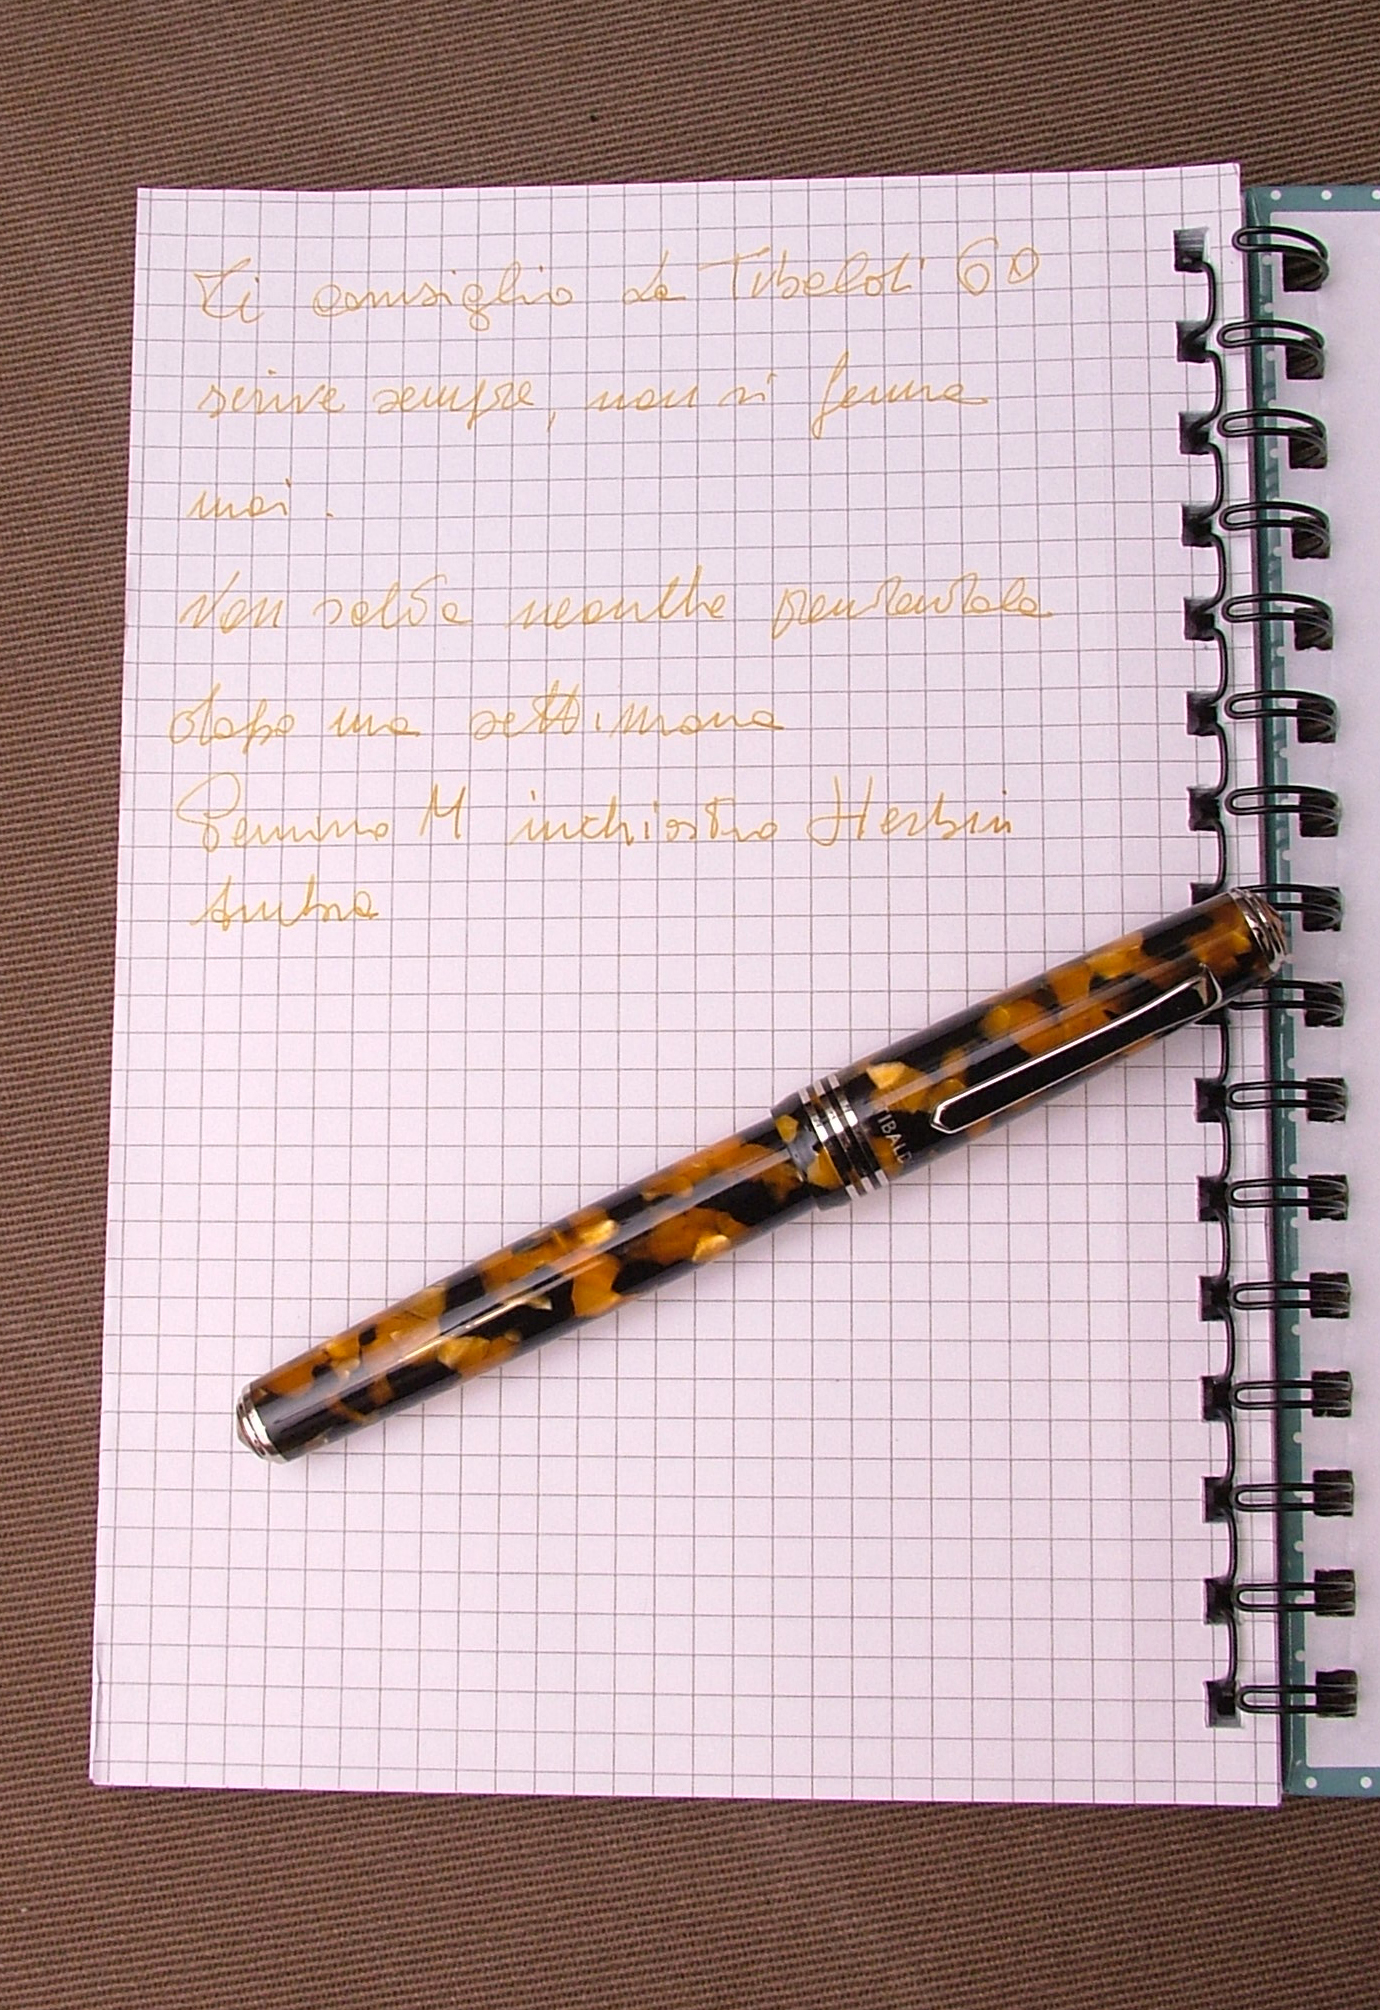 Ti consiglio la Tibaldi 60
scrive sempre, non si ferma
mai.
Non salta neanche prendendola
dopo una settimana
Pennino M inchiostro Herbin
Ambra
TIBALD